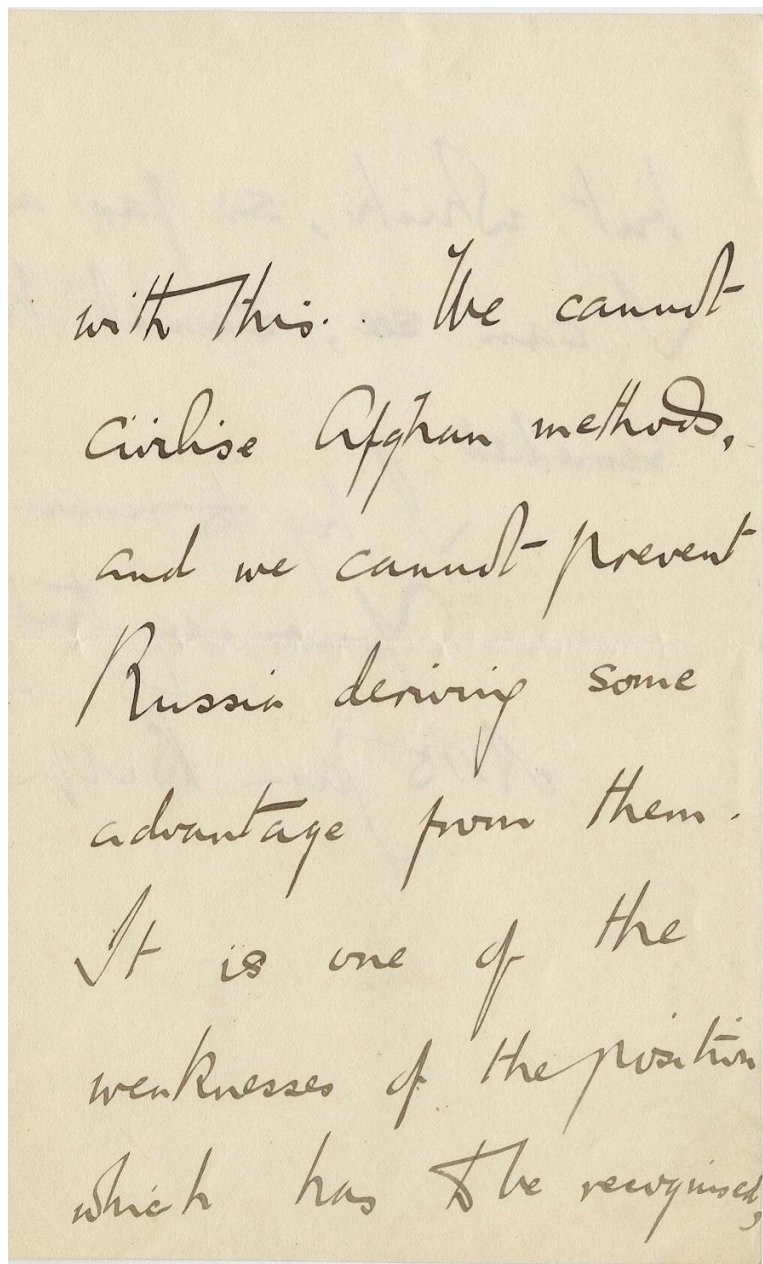 with this. We cannot
civilise Afghan methods,
and we cannot prevent
Russia deriving some
advantage from them.
It is one of the
weaknesses of the position
which has to be recognised,